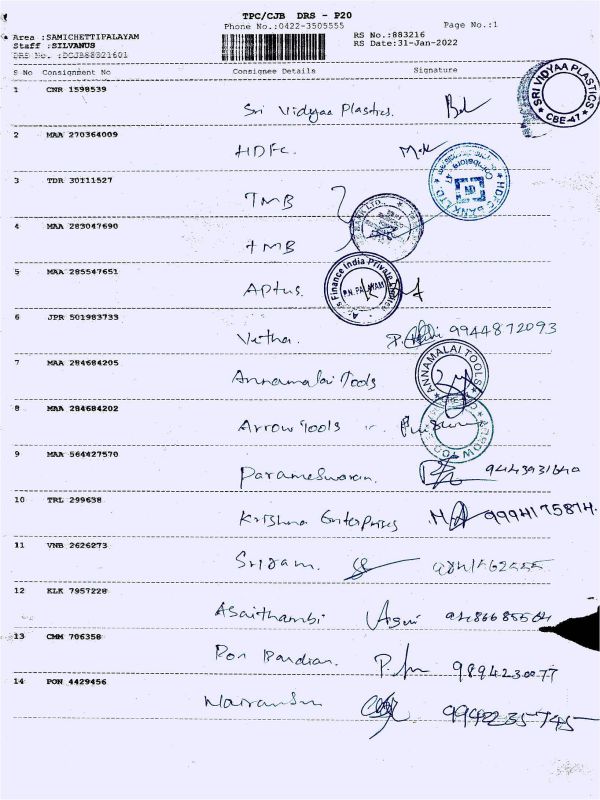 TPC/CJB DRS - P20
Phone No.:0422-3505555 Page No.:1
Area :SAMICHETTIPALAYAM RS No.:883216
Staff :SILVANUS RS Date:31-Jan-2022
DRS No. :DCJB88321601
S No Consignment No Consignee Details Signature
1 CNR 1598539 Sri Vidyaa Plastics.
SRI VIDYAA PLASTICS
CBE-47
2 MAA 270364009 HDFC.
HDFC BANK LTD.
3 TDR 30111527 TMB
BANK LTD.
4 MAA 283047690 TMB
5 MAA 285547651 Aptus.
Finance India Private
P.N. PALAYAM
6 JPR 501983733 9944872093
7 MAA 284684205 Annamalai Tools
ANNAMALAI TOOLS
8 MAA 284684202 Arrow Tools
ARROW TOO
9 MAA 564427570 Parameswaran.
10 TRL 299638 Krishna Enterprises 9994175874.
11 VNB 2626273 Sriram.
12 KLK 7957228 Asaithambi
13 CMM 706358 Pon Pandian. 9894230077
14 PON 4429456 9942235745